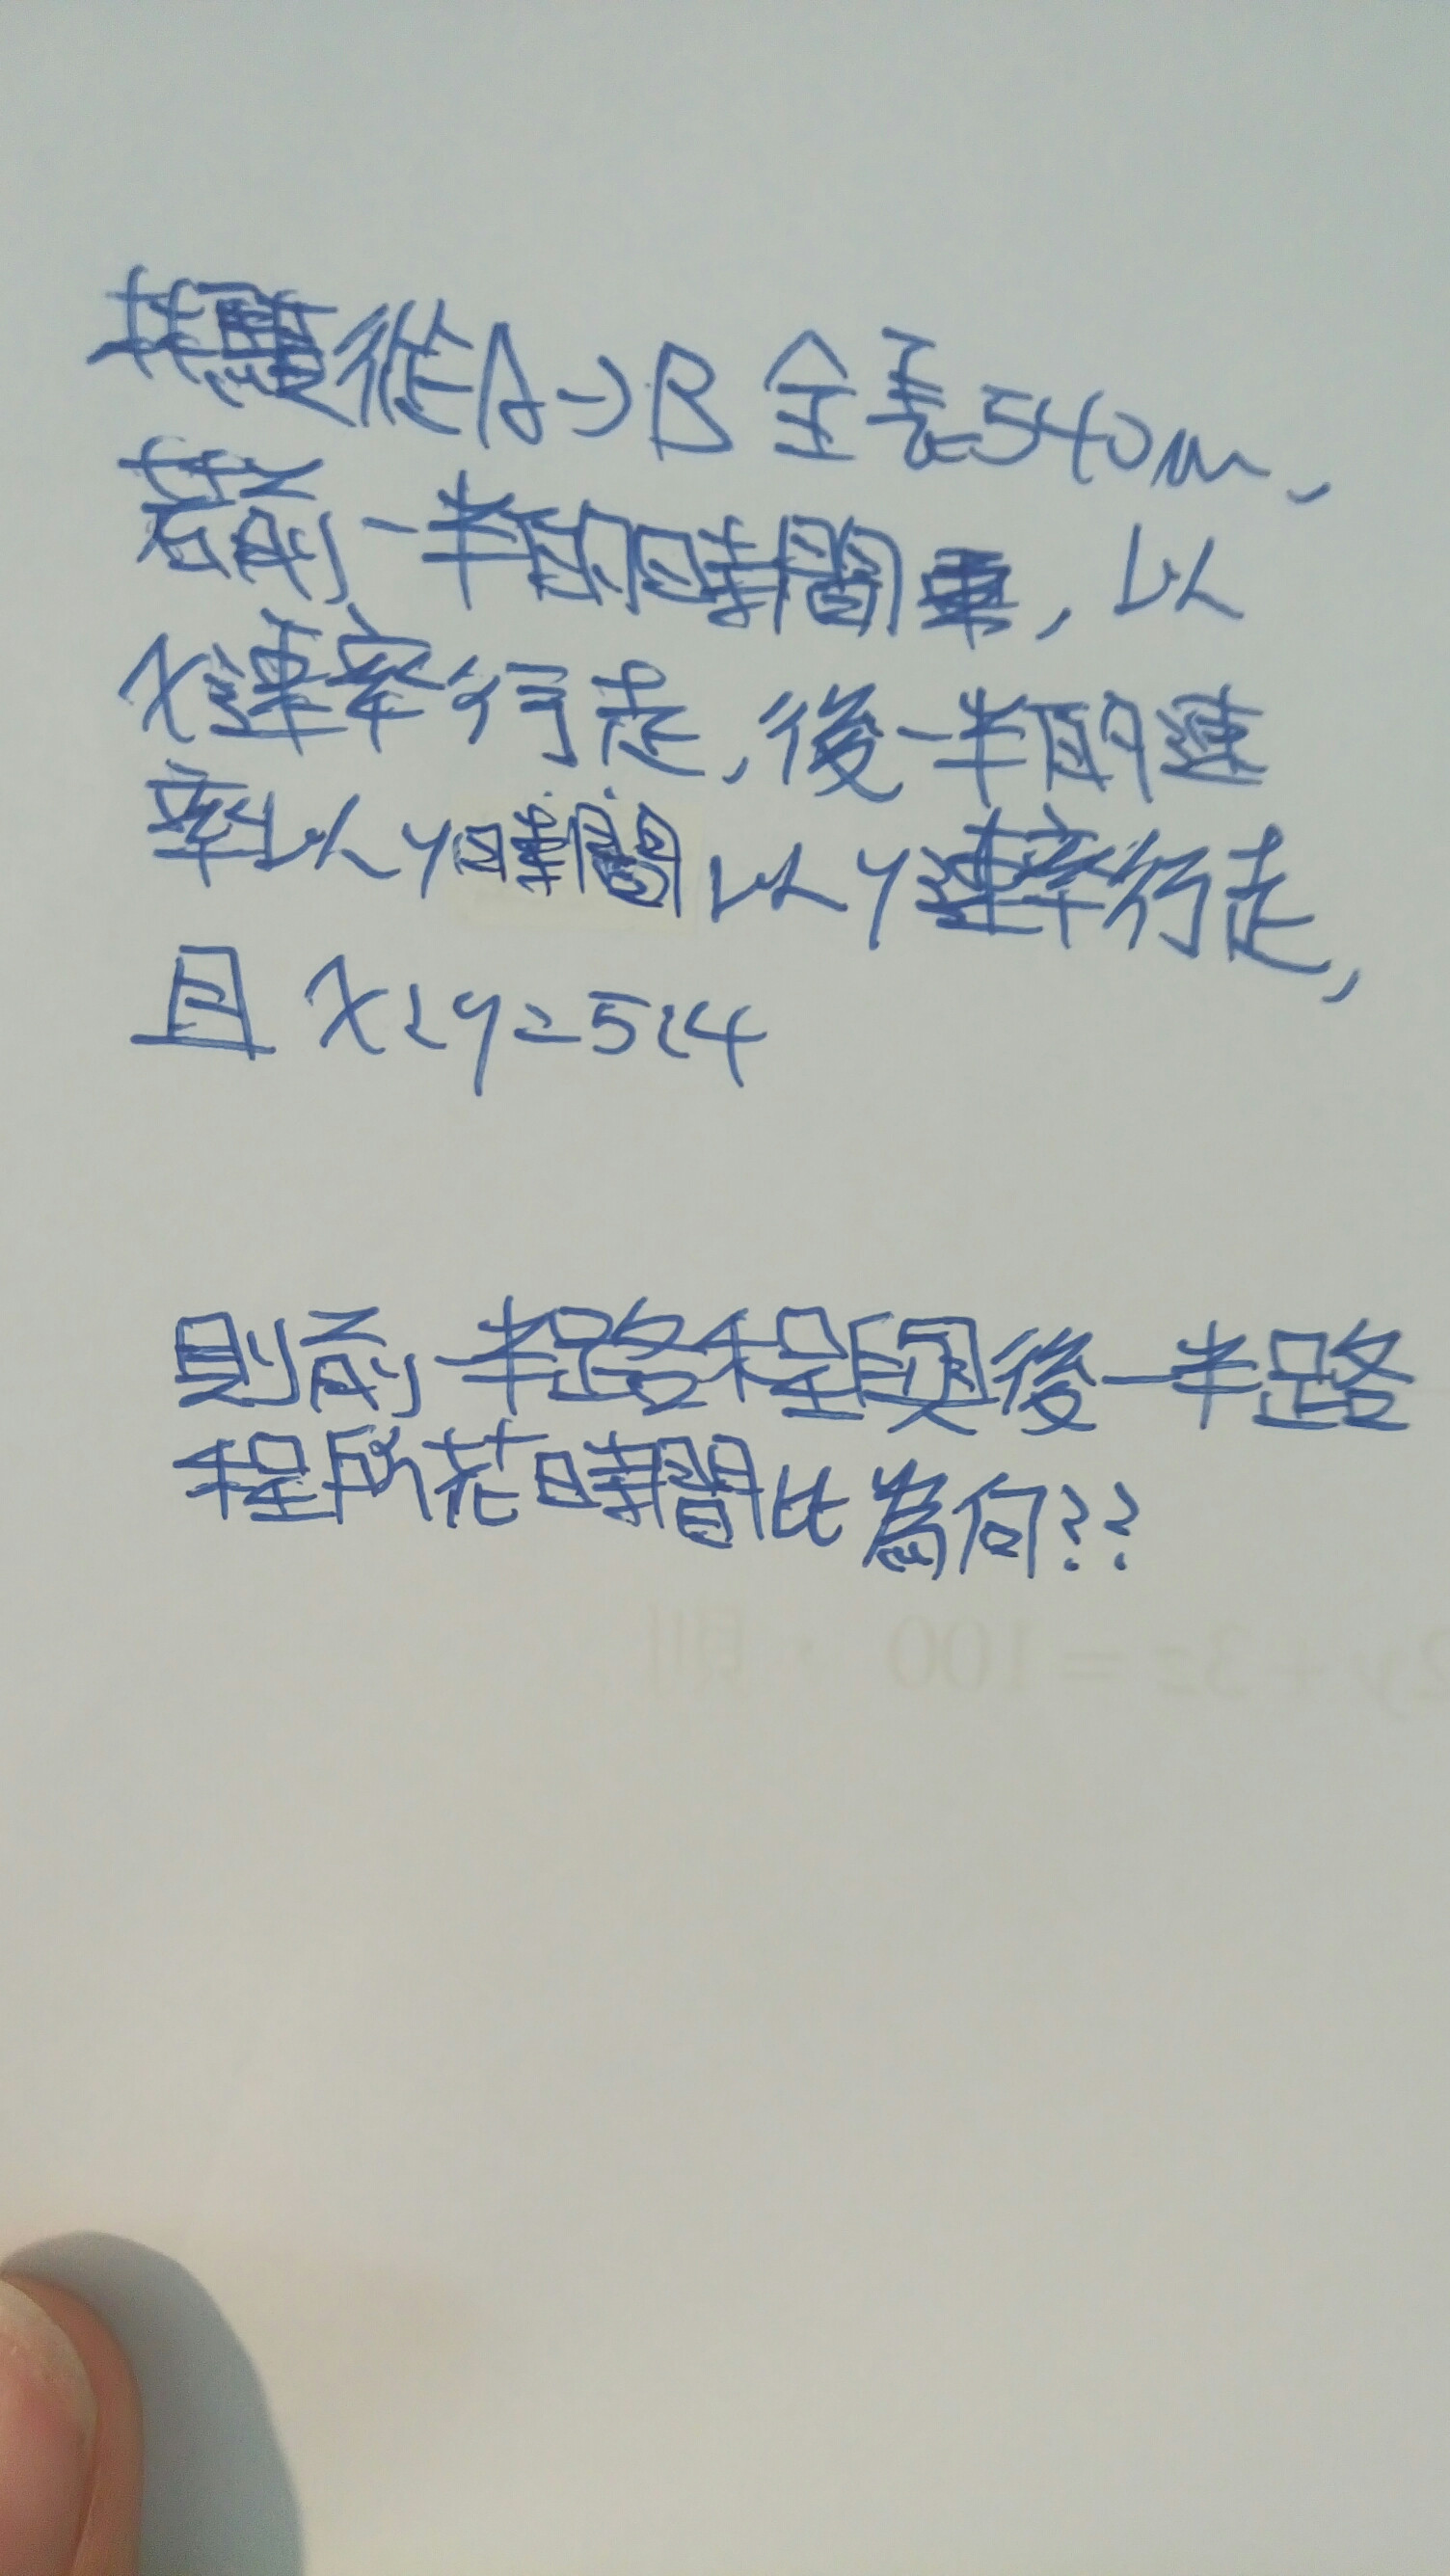 從A→B全長540m,
若前一半的時間,以
x速率行走,後一半的速
率以y時間以y速率行走,
且 x:y=5:4
則前一半路程與後一半路
程所花時間比為何??
2y+3z=100,則